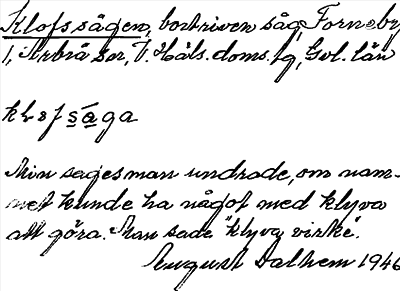 Klofssågen, bortriven såg, Forneby
1, Arbrå sn, V. Häls. doms. lg, Gvl. län
klofsåga
Min sagesman undrade, om nam-
net kunde ha något med klyva
att göra. Man sade "klyva virke".
August Dalhem 1946